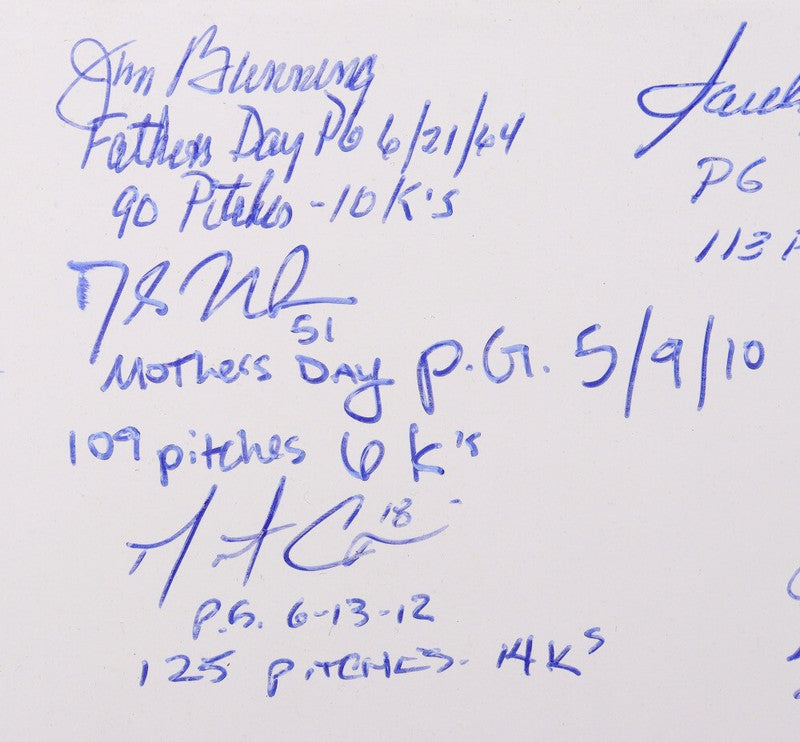 Jim Bunning
Fathers Day PG 6/21/64
90 Pitches - 10 K's
51
Mothers Day P.G. 5/9/10
109 pitches 6 K's
18
P.G. 6-13-12
125 PITCHES. 14 Ks
PG
113